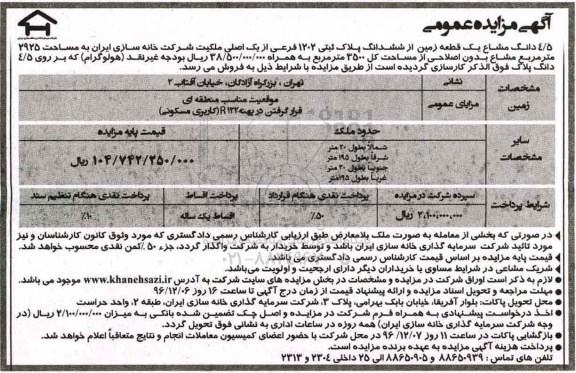 آگهی مزایده عمومی
۴/۵ دانگ مشاع یک قطعه زمین از ششدانگ پلاک ثبتی ۱۲۰۲ فرعی از یک اصلی ملکیت شرکت خانه سازی ایران به مساحت ۲۹۲۵
مترمربع مشاع بدون اصلاحی از مساحت کل ۳۵۰۰ مترمربع به همراه ۳۸/۵۰۰/۰۰۰/۰۰۰ ریال بودجه غیرنقد (هولوگرام) که بر روی ۴/۵
دانگ پلاک فوق الذکر کارسازی گردیده است از طریق مزایده با شرایط ذیل به فروش می رسد.
مشخصات زمین
نشانی
تهران، بزرگراه آزادگان، خیابان آفتاب ۲
مزایای عمومی
موقعیت مناسب منطقه ای
قرار گرفتن در پهنه R۱۲۲ (کاربری مسکونی)
سایر مشخصات
حدود ملک
قیمت پایه مزایده
شمالاً بطول ۲۰ متر
شرقاً بطول ۱۹۵ متر
جنوباً بطول ۲۰ متر
غرباً بطول ۱۹۵ متر
۱۰۴/۷۴۲/۲۵۰/۰۰۰ ریال
شرایط پرداخت
سپرده شرکت در مزایده
پرداخت نقدی هنگام قرارداد
پرداخت اقساط
پرداخت نقدی هنگام تنظیم سند
۲،۱۰۰،۰۰۰،۰۰۰ ریال
۵۰٪
اقساط یک ساله
۱۰٪
در صورتی که بخشی از معامله به صورت ملک بلامعارض طبق ارزیابی کارشناس رسمی دادگستری که مورد وثوق کانون کارشناسان و نیز
مورد تائید شرکت سرمایه گذاری خانه سازی ایران باشد و توسط خریدار به شرکت واگذار گردد، جزء ۵۰٪ ثمن نقدی محسوب خواهد شد.
قیمت پایه مزایده بر اساس قیمت کارشناس رسمی دادگستری می باشد.
شریک مشاعی در شرایط مساوی با خریداران دیگر دارای ارجحیت و اولویت می‌باشد.
لازم به ذکر است اوراق شرکت در مزایده و مشخصات در بخش مزایده های سایت شرکت به آدرس www.khanehsazi.ir موجود می باشد.
مهلت مراجعه و تحویل اسناد مزایده و ارائه پیشنهاد قیمت از زمان درج آگهی تا ساعت ۱۶ روز ۹۶/۱۲/۰۶
محل تحویل پاکات: بلوار آفریقا، خیابان بابک بهرامی، پلاک ۳، شرکت سرمایه گذاری خانه سازی ایران، طبقه ۲، واحد حراست
اخذ درخواست پیشنهادی به همراه فرم شرکت در مزایده و اصل چک تضمین شده بانکی به میزان ۲/۱۰۰/۰۰۰/۰۰۰ ریال (در
وجه شرکت سرمایه گذاری خانه سازی ایران) همه روزه در ساعات اداری به نشانی فوق تحویل گردد.
بازگشایی پاکات در ساعت ۱۱ روز ۹۶/۱۲/۰۷ در محل شرکت با حضور اعضای کمیسیون معاملات انجام و نتایج متعاقباً اعلام خواهد شد.
پرداخت هزینه آگهی مزایده به عهده برنده مزایده است.
تلفن های تماس: ۸۸۶۵۰۹۳۹ و ۸۸۶۵۰۹۰۵ الی ۲۵ داخلی ۲۳۰۴ و ۲۳۱۳